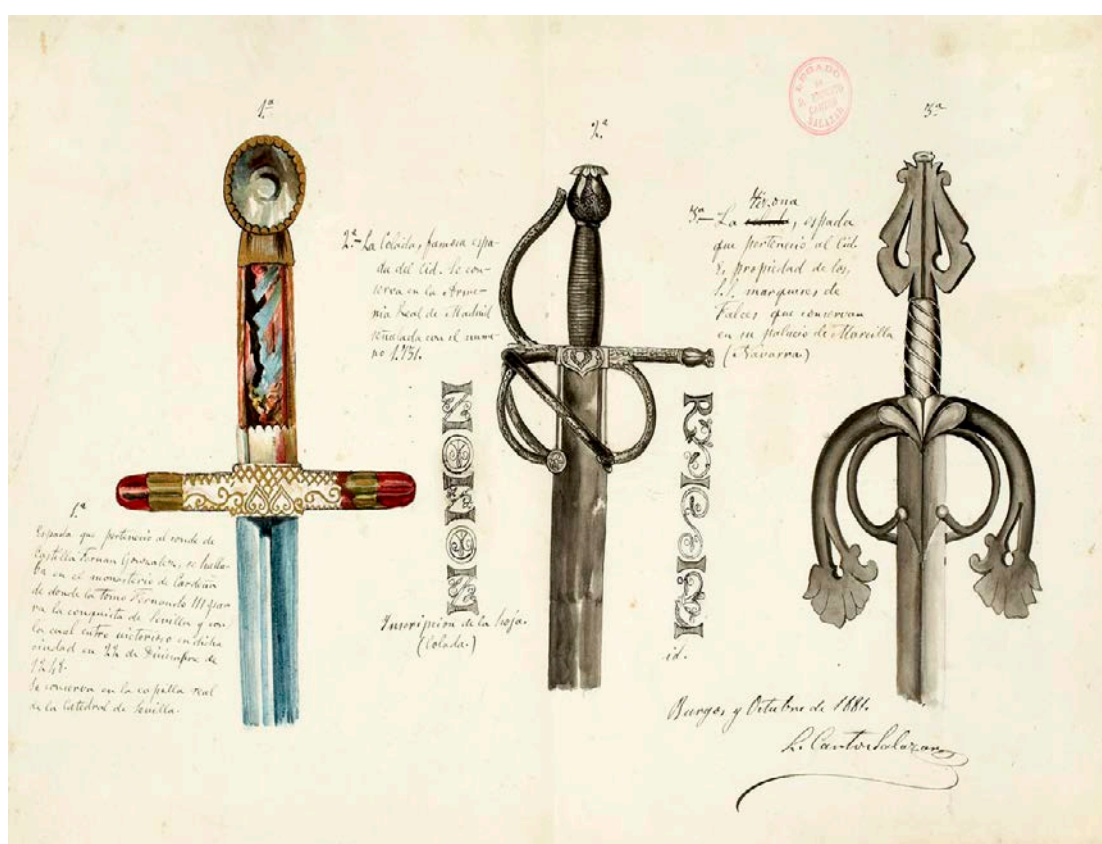 1ª
2ª
3ª
LEGADO
DE
CANTON
SALAZAR
2ª- La Colada, famosa espa-
da del Cid. Se con-
serva en la Arme-
ria Real de Madrid
señalada con el nume-
ro 1.731.
Tizona
3ª- La colada, espada
que perteneció al Cid.
Es propiedad de los
S.S. marqueses de
Falces que conservan
en su palacio de Marcilla
(Navarra)
1ª
Espada que perteneció al conde de
Castilla Fernan Gonzalez, se halla-
ba en el monasterio de Cardeña
de donde la tomo Fernando III pa-
ra la conquista de Sevilla y con
la cual entro victorioso en dicha
ciudad en 22 de Diciembre de
1248.
Se conserva en la capilla real
de la Catedral de Sevilla.
Inscripcion de la hoja.
(Colada.)
id.
Burgos y Octubre de 1881.
L. Canton Salazar